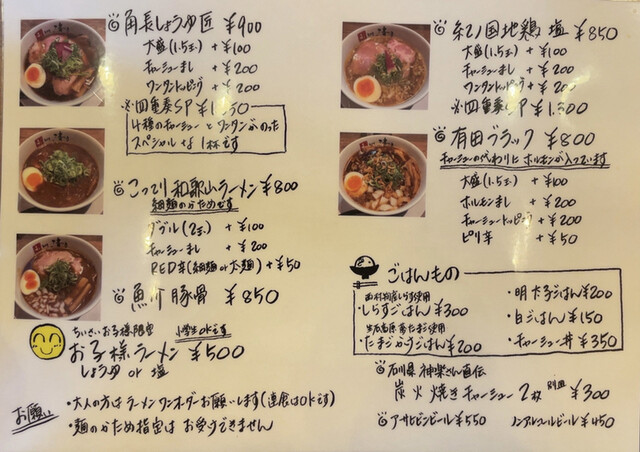 角長しょうゆ匠 ¥900
大盛(1.5玉) +¥100
チャーシューまし +¥200
ワンタントッピング +¥200
※四重奏SP ¥1,350
4種のチャーシューとワンタンがのった
スペシャルな1杯です
こってり和歌山ラーメン ¥800
細麺のかためです
ダブル(2玉) +¥100
チャーシューまし +¥200
RED辛(細麺or太麺) +¥50
魚介豚骨 ¥850
ちいさいお子様限定 小学生OKです
お子様ラーメン ¥500
しょうゆ or 塩
お願い
・大人の方はラーメンワンオーダーお願いします(連食はOKです)
・麺のかため指定はお受けできません
紀ノ国地鶏 塩 ¥850
大盛(1.5玉) +¥100
チャーシューまし +¥200
ワンタントッピング +¥200
※四重奏SP ¥1,300
有田ブラック ¥800
チャーシューの代わりにホルモンが入っています
大盛(1.5玉) +¥100
ホルモンまし +¥200
チャーシュートッピング +¥200
ピリ辛 +¥50
ごはんもの
しらす使用
・しらすごはん ¥300
たまご使用
・たまごかけごはん ¥200
・明太子ごはん ¥200
・白ごはん ¥150
・チャーシュー丼 ¥350
石川県 神楽さん直伝
炭火焼きチャーシュー 2枚 別皿 ¥300
アサヒビンビール ¥550
ノンアルコールビール ¥450